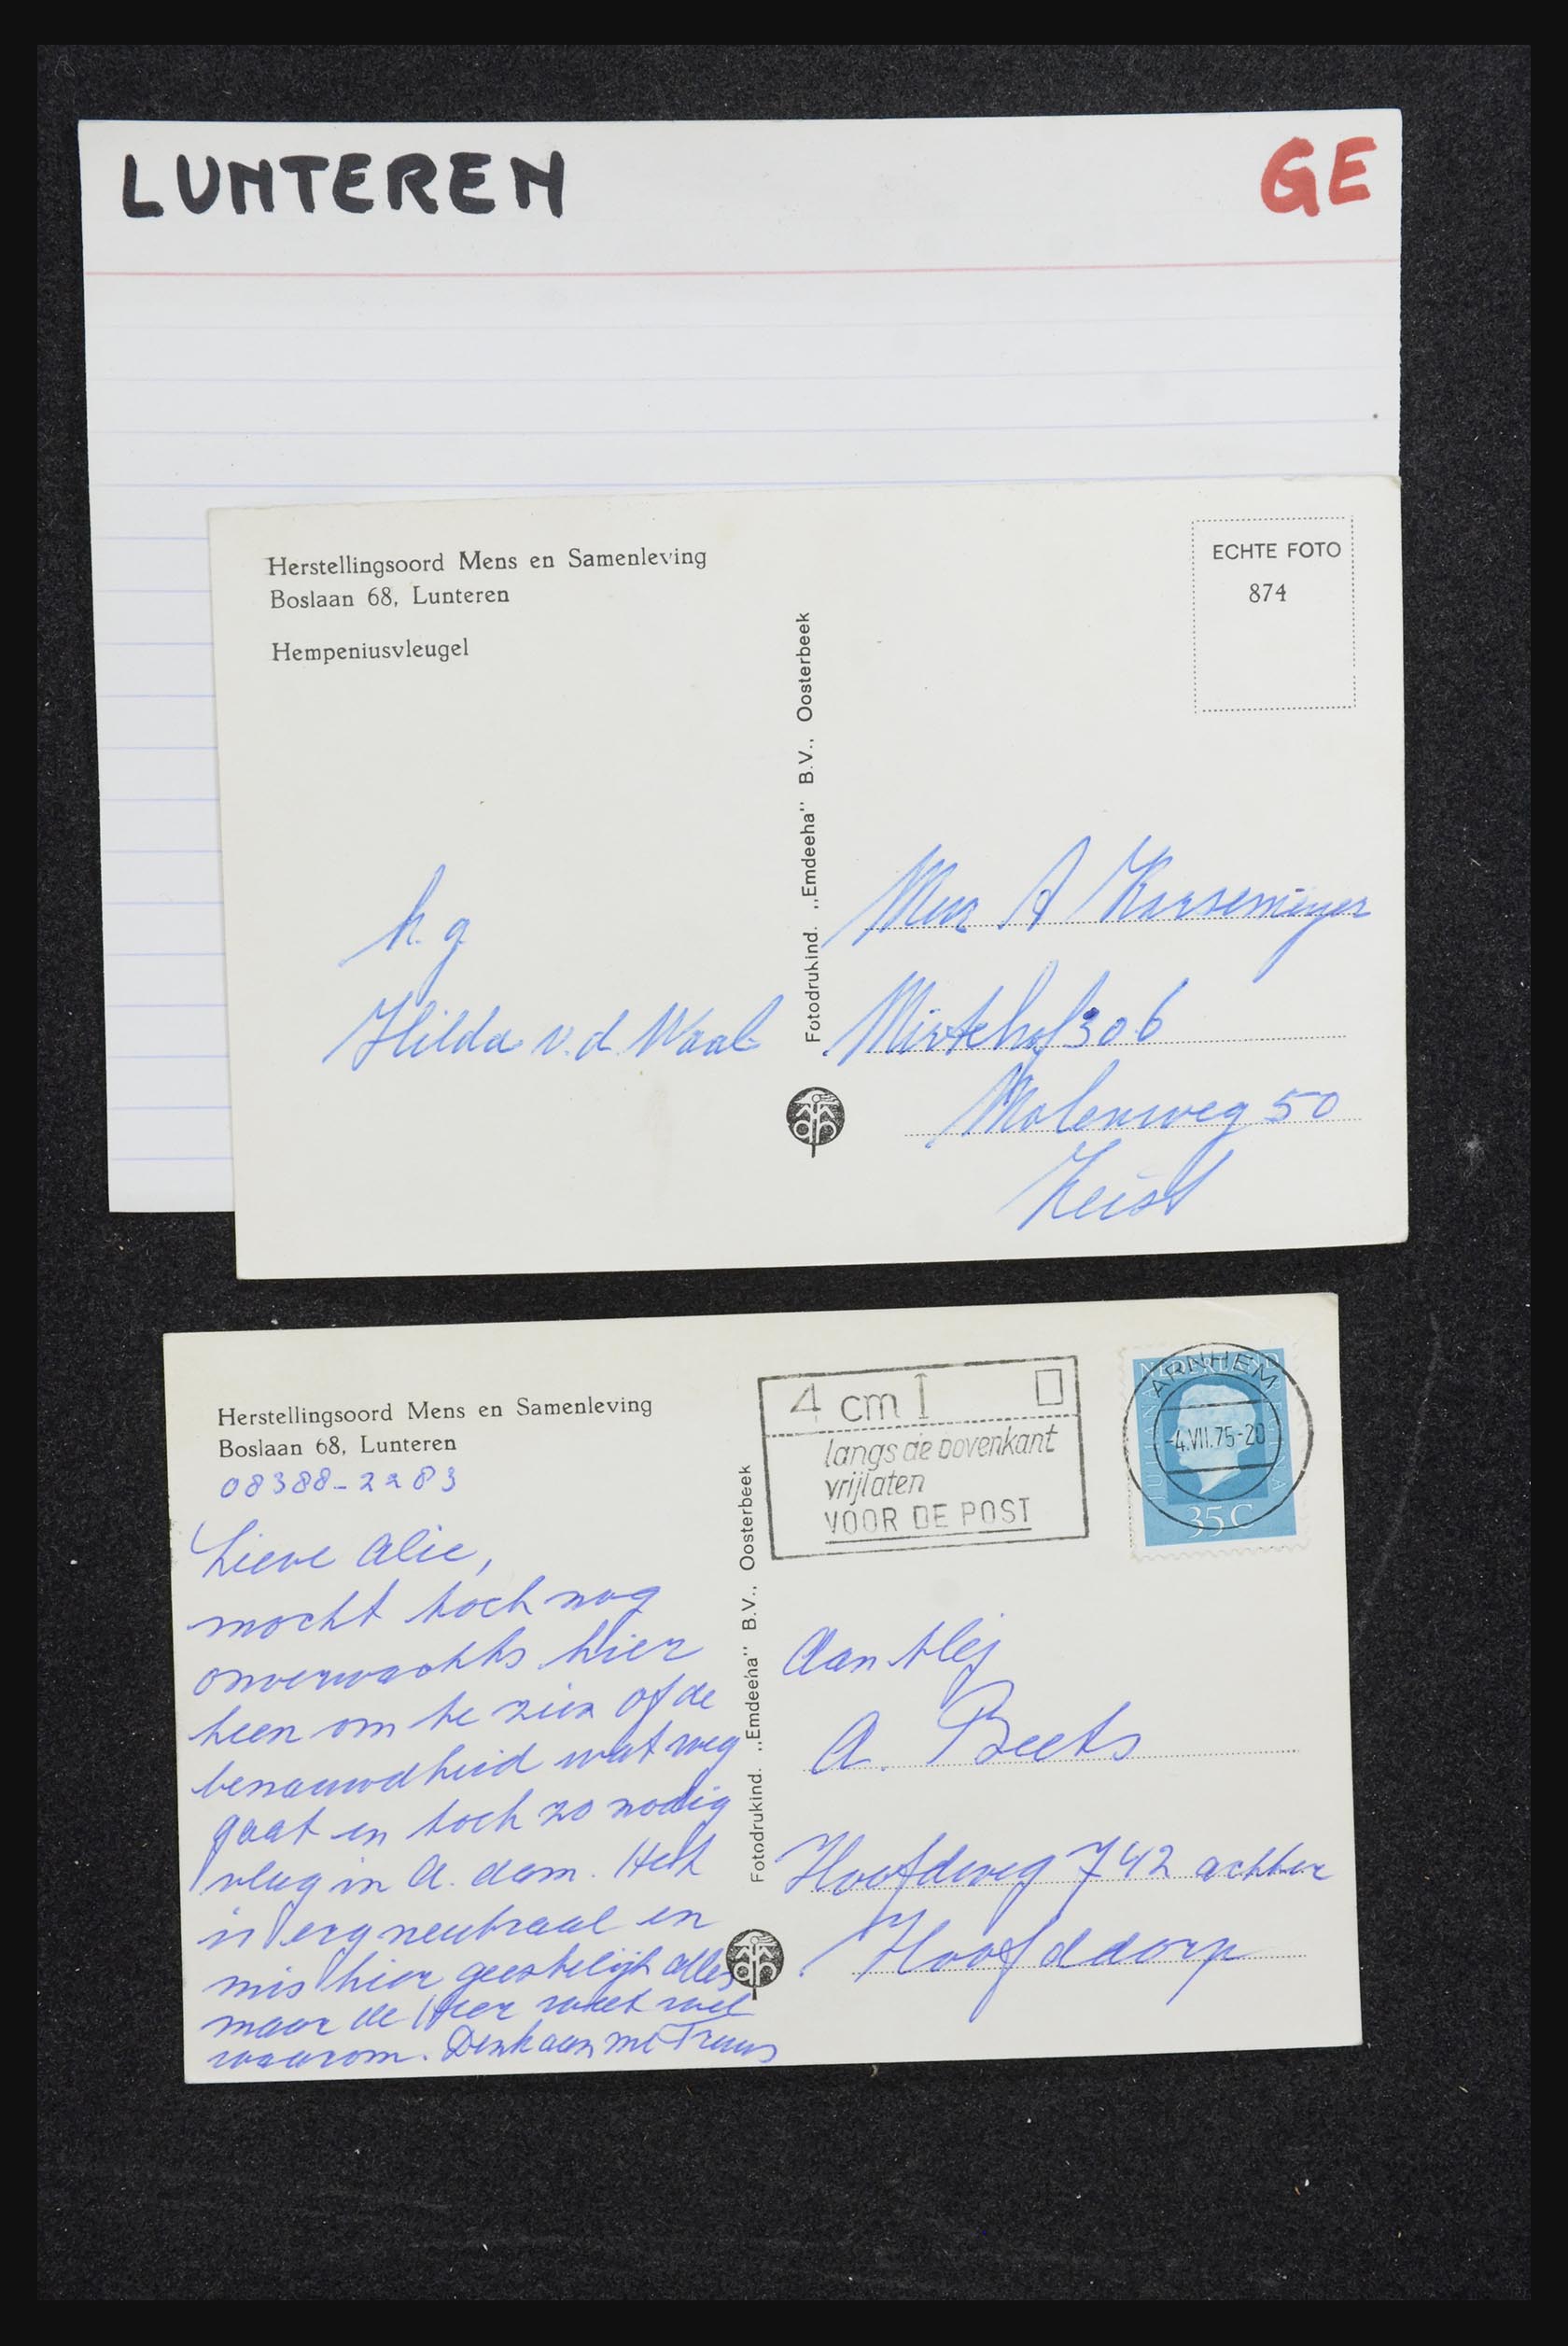 LUNTEREN
GE
Herstellingsoord Mens en Samenleving
Boslaan 68, Lunteren
Hempeniusvleugel
ECHTE FOTO
874
Fotodrukind. „Emdeeha" B.V., Oosterbeek
h. g
Hilda v.d. Waal
Mevr A
306
Molenweg 50
Zeist
Herstellingsoord Mens en Samenleving
Boslaan 68, Lunteren
08388-2283
4 cm
langs de bovenkant
vrijlaten
VOOR DE POST
ARNHEM
-4.VII.75-20
NEDERLAND
JULIANA REGINA
35 C
Fotodrukind. „Emdeeha" B.V., Oosterbeek
Lieve Alie,
mocht toch nog
onverwachts hier
heen om te zien of de
benauwdheid wat weg
gaat en toch zo nodig
vlug in A. dam. Het
is erg neutraal en
mis hier geestelijk alles
maar de Heer weet wel
waarom. Denk aan me Truus
Aan Mej
A. Beets
Hoofdweg 742 achter
Hoofddorp